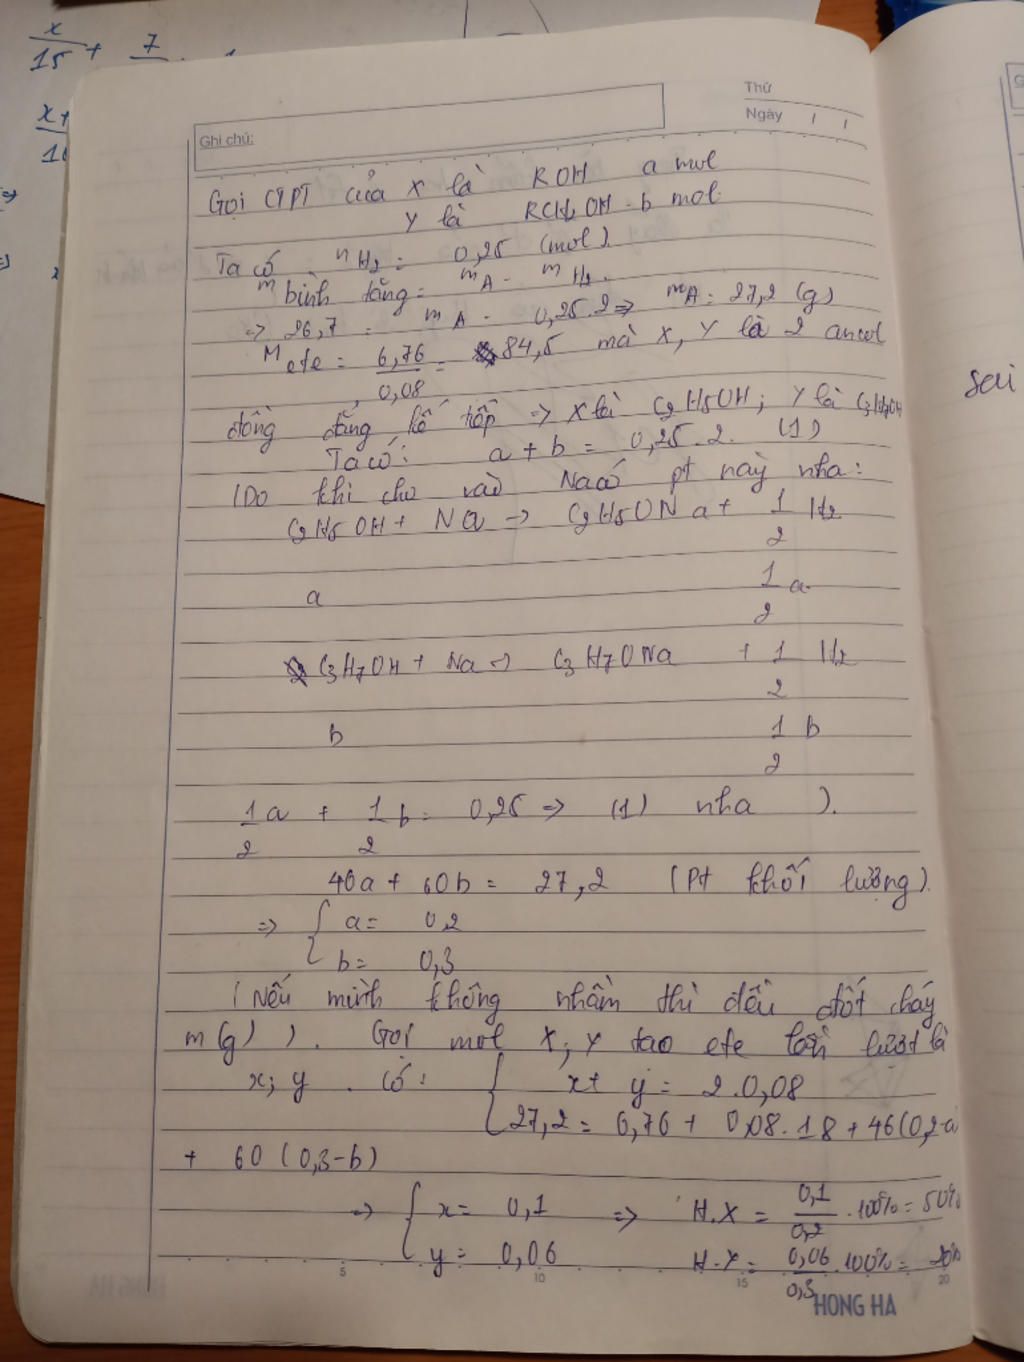 x/15 + 7
x+
Thứ
Ngày / /
Ghi chú:
Gọi CTPT của X là ROH a mol
Y là RCH2OH b mol.
Ta có nH2 = 0,25 (mol).
m bình tăng = mA - mH2.
=> 26,7 = mA - 0,25.2 => mA = 27,2 (g)
M ete = 6,76/0,08 = 84,5 mà X, Y là 2 ancol
đồng đẳng kế tiếp => X là C2H5OH; Y là C3H7OH
Ta có: a + b = 0,25.2. (1)
(Do khi cho vào Na có pt này nha:
C2H5OH + Na -> C2H5ONa + 1/2 H2
a 1/2 a
C3H7OH + Na -> C3H7ONa + 1/2 H2
b 1/2 b
1/2 a + 1/2 b = 0,25 => (1) nha ).
46a + 60b = 27,2 (Pt khối lượng).
=> { a = 0,2
b = 0,3
(Nếu mình không nhầm thì đều đốt cháy
m(g) ). Gọi mol X, Y tạo ete lần lượt là
x; y. Có: { x + y = 2.0,08
27,2 = 6,76 + 0,08.18 + 46(0,2-a)
+ 60(0,3-b)
=> { x = 0,1 => H.X = 0,1/0,2 .100% = 50%
y = 0,06 H.Y = 0,06/0,3 .100% = 20%
5 10 15 20
HONG HA
sai